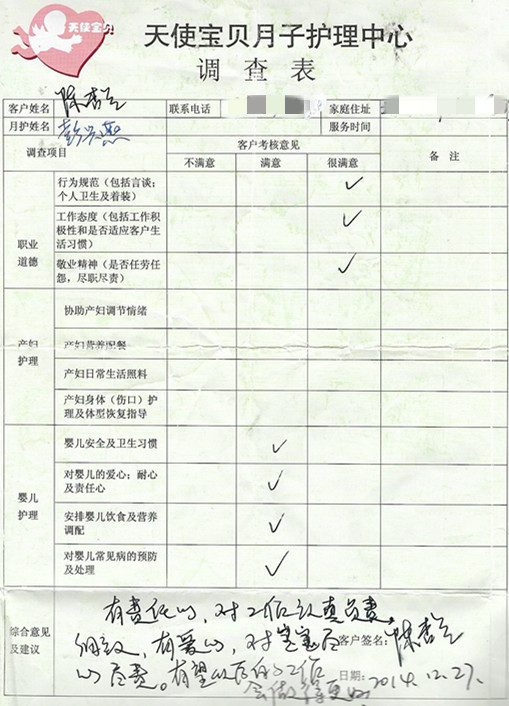 天使宝贝
天使宝贝月子护理中心
调查表
客户姓名 联系电话 家庭住址
月护姓名 服务时间
调查项目 客户考核意见 备注
不满意 满意 很满意
职业道德
行为规范(包括言谈;
个人卫生及着装) ✓
工作态度(包括工作积
极性和是否适应客户生
活习惯) ✓
敬业精神(是否任劳任
怨,尽职尽责) ✓
产妇护理
协助产妇调节情绪
产妇营养配餐
产妇日常生活照料
产妇身体(伤口)护
理及体型恢复指导
婴儿护理
婴儿安全及卫生习惯 ✓
对婴儿的爱心;耐心
及责任心 ✓
安排婴儿饮食及营养
调配 ✓
对婴儿常见病的预防
及处理 ✓
综合意见
及建议
有责任心,对工作认真负责,
细致,有爱心,对宝宝尽
心尽责。有望以后的工作
会做得更好
客户签名:
日期:2014.12.27.